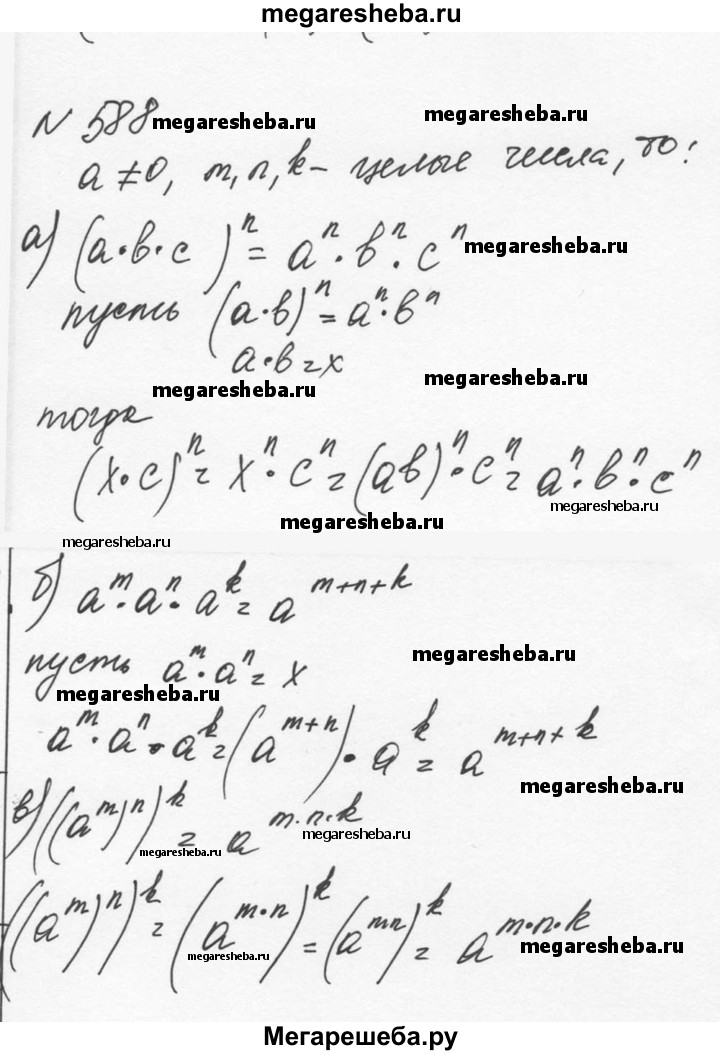 megaresheba.ru
№ 588 megaresheba.ru megaresheba.ru
a ≠ 0, m, n, k – целые числа, то:
а) (a·b·c)^n = a^n · b^n · c^n megaresheba.ru
пусть (a·b)^n = a^n · b^n
a·b = x
megaresheba.ru megaresheba.ru
тогда
(x·c)^n = x^n · c^n = (ab)^n · c^n = a^n · b^n · c^n
megaresheba.ru
megaresheba.ru
megaresheba.ru
б) a^m · a^n · a^k = a^(m+n+k)
пусть a^m · a^n = x megaresheba.ru
megaresheba.ru
a^m · a^n · a^k = (a^(m+n)) · a^k = a^(m+n+k)
megaresheba.ru
в) ((a^m)^n)^k = a^(m·n·k)
megaresheba.ru
megaresheba.ru
((a^m)^n)^k = (a^(m·n))^k = (a^(mn))^k = a^(m·n·k)
megaresheba.ru megaresheba.ru
Мегарешеба.ру